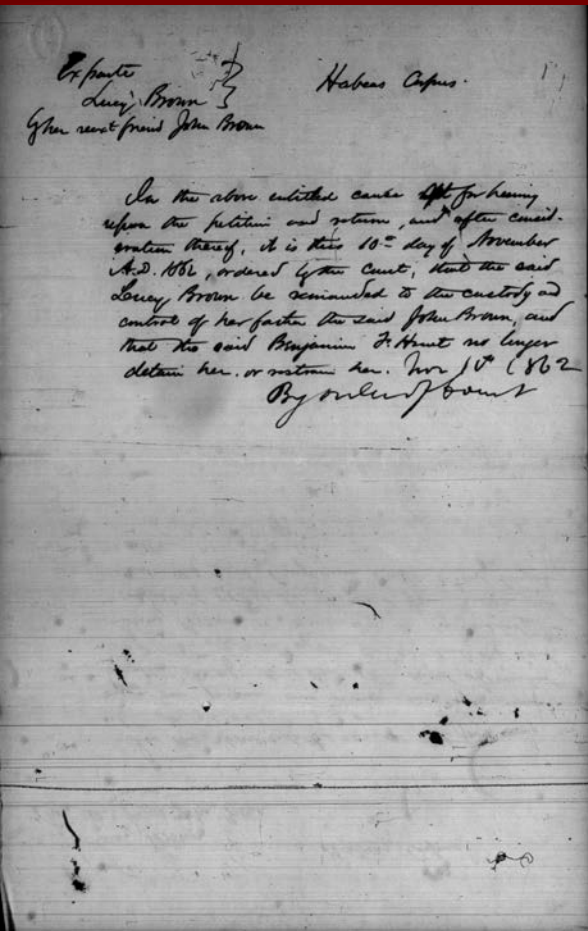 Ex parte
Lucy Brown
By her next friend John Brown
Habeas Corpus.
In the above entitled cause set for hearing
upon the petition and return, and after consid-
eration thereof, it is this 10th day of November
A.D. 1862, ordered by the Court, that the said
Lucy Brown be remanded to the custody and
control of her father the said John Brown, and
that the said Benjamin F. Hunt no longer
detain her. or restrain her. Nov 10th 1862
By order of Court